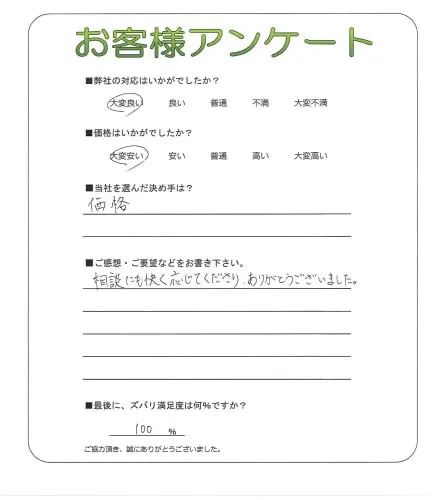 お客様アンケート
■弊社の対応はいかがでしたか？
大変良い 良い 普通 不満 大変不満
■価格はいかがでしたか？
大変安い 安い 普通 高い 大変高い
■当社を選んだ決め手は？
価格
■ご感想・ご要望などをお書き下さい。
相談にも快く応じてくださり、ありがとうございました。
■最後に、ズバリ満足度は何%ですか？
100 %
ご協力頂き、誠にありがとうございました。